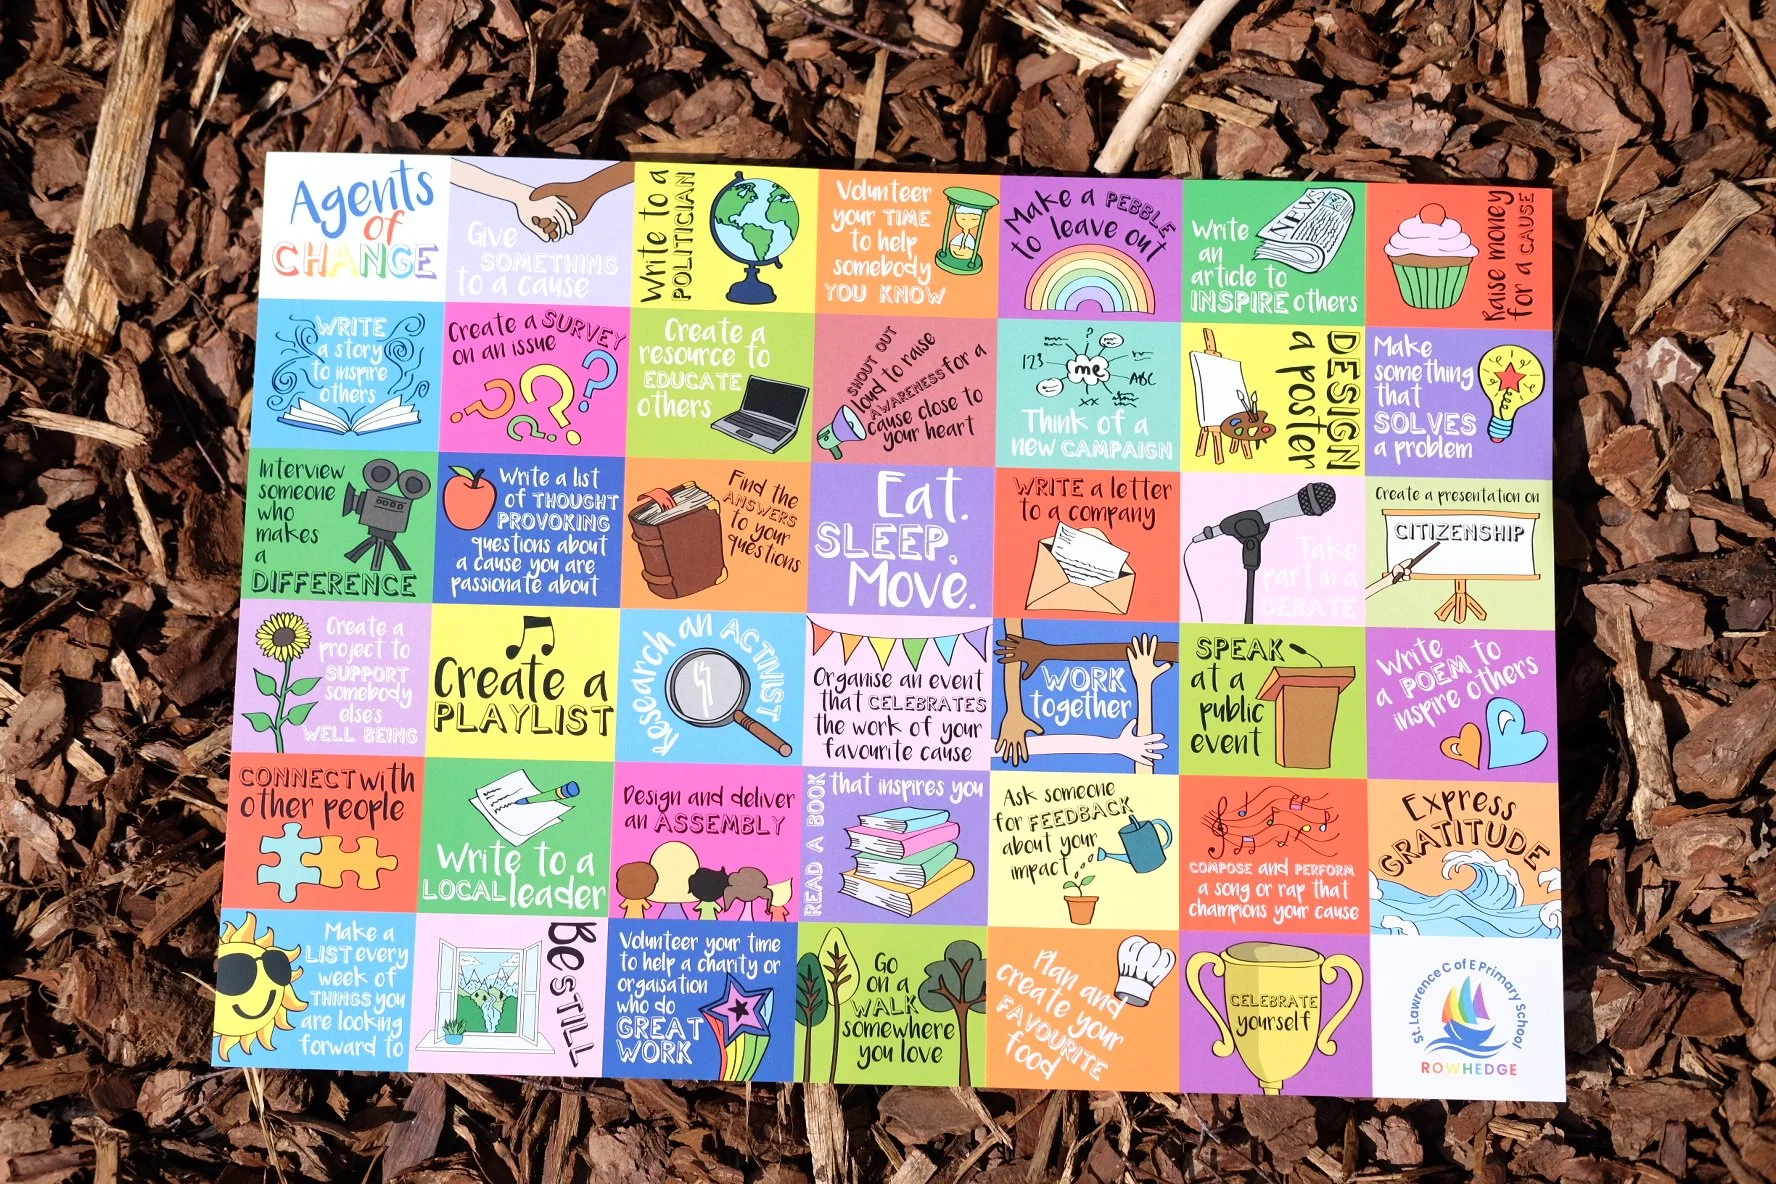 Agents
of
CHANGE
Give
SOMETHING
to a cause
Write to a
POLITICIAN
Volunteer
your TIME
to help
somebody
YOU KNOW
Make a PEBBLE
to leave out
NEWS
Write
an
article to
INSPIRE others
Raise money
for a CAUSE
WRITE
a story
to inspire
others
Create a SURVEY
on an issue
Create a
resource to
EDUCATE
others
SHOUT OUT
loud to raise
AWARENESS for a
cause close to
your heart
?
123
me
ABC
xx
Think of a
new CAMPAIGN
DESIGN
a poster
Make
something
that
SOLVES
a problem
Interview
someone
who
makes
a
DIFFERENCE
Write a list
of THOUGHT
PROVOKING
questions about
a cause you are
passionate about
Find the
ANSWERS
to your
questions
Eat.
SLEEP.
Move.
WRITE a letter
to a company
Take
part in a
DEBATE
Create a presentation on
CITIZENSHIP
Create a
project to
SUPPORT
somebody
else's
WELL BEING
Create a
PLAYLIST
Research an ACTIVIST
Organise an event
that CELEBRATES
the work of your
favourite cause
WORK
together
SPEAK
at a
public
event
Write
a POEM to
inspire others
CONNECT with
other people
Write to a
LOCAL leader
Design and deliver
an ASSEMBLY
READ A BOOK
that inspires you
Ask someone
for FEEDBACK
about your
impact...
COMPOSE and PERFORM
a song or rap that
champions your cause
Express
GRATITUDE
Make a
LIST every
week of
THINGS you
are looking
forward to
Be STILL
Volunteer your time
to help a charity or
orgaisation
who do
GREAT
WORK
Go
on a
WALK
somewhere
you love
Plan and
create your
FAVOURITE
food
CELEBRATE
yourself
St. Lawrence C of E Primary School
ROWHEDGE